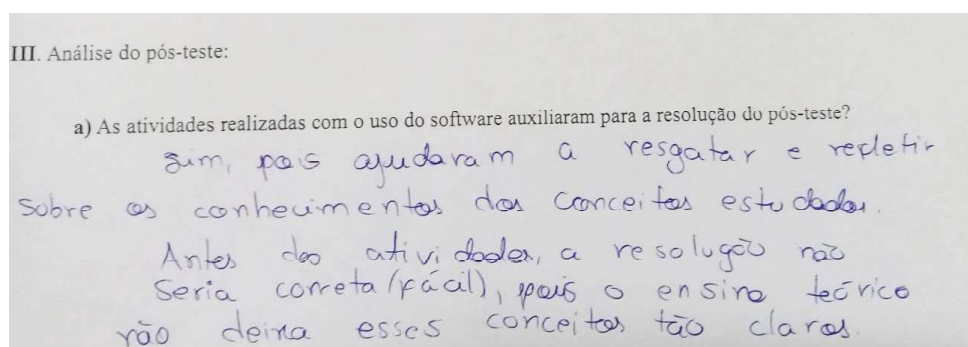 III. Análise do pós-teste:
a) As atividades realizadas com o uso do software auxiliaram para a resolução do pós-teste?
Sim, pois ajudaram a resgatar e refletir
sobre os conhecimentos dos conceitos estudados.
Antes das atividades, a resolução não
seria correta (fácil), pois o ensino teórico
não deixa esses conceitos tão claros.